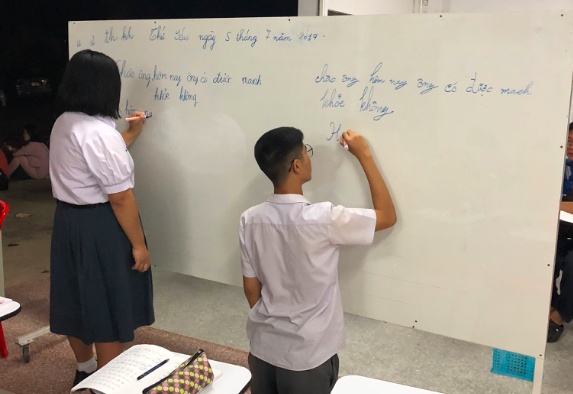 Thứ sáu ngày 5 tháng 7 năm 2019.
Chào ông hôm nay ông có được mạnh
khỏe không
chào ông hôm nay ông có được mạnh
khỏe không
H